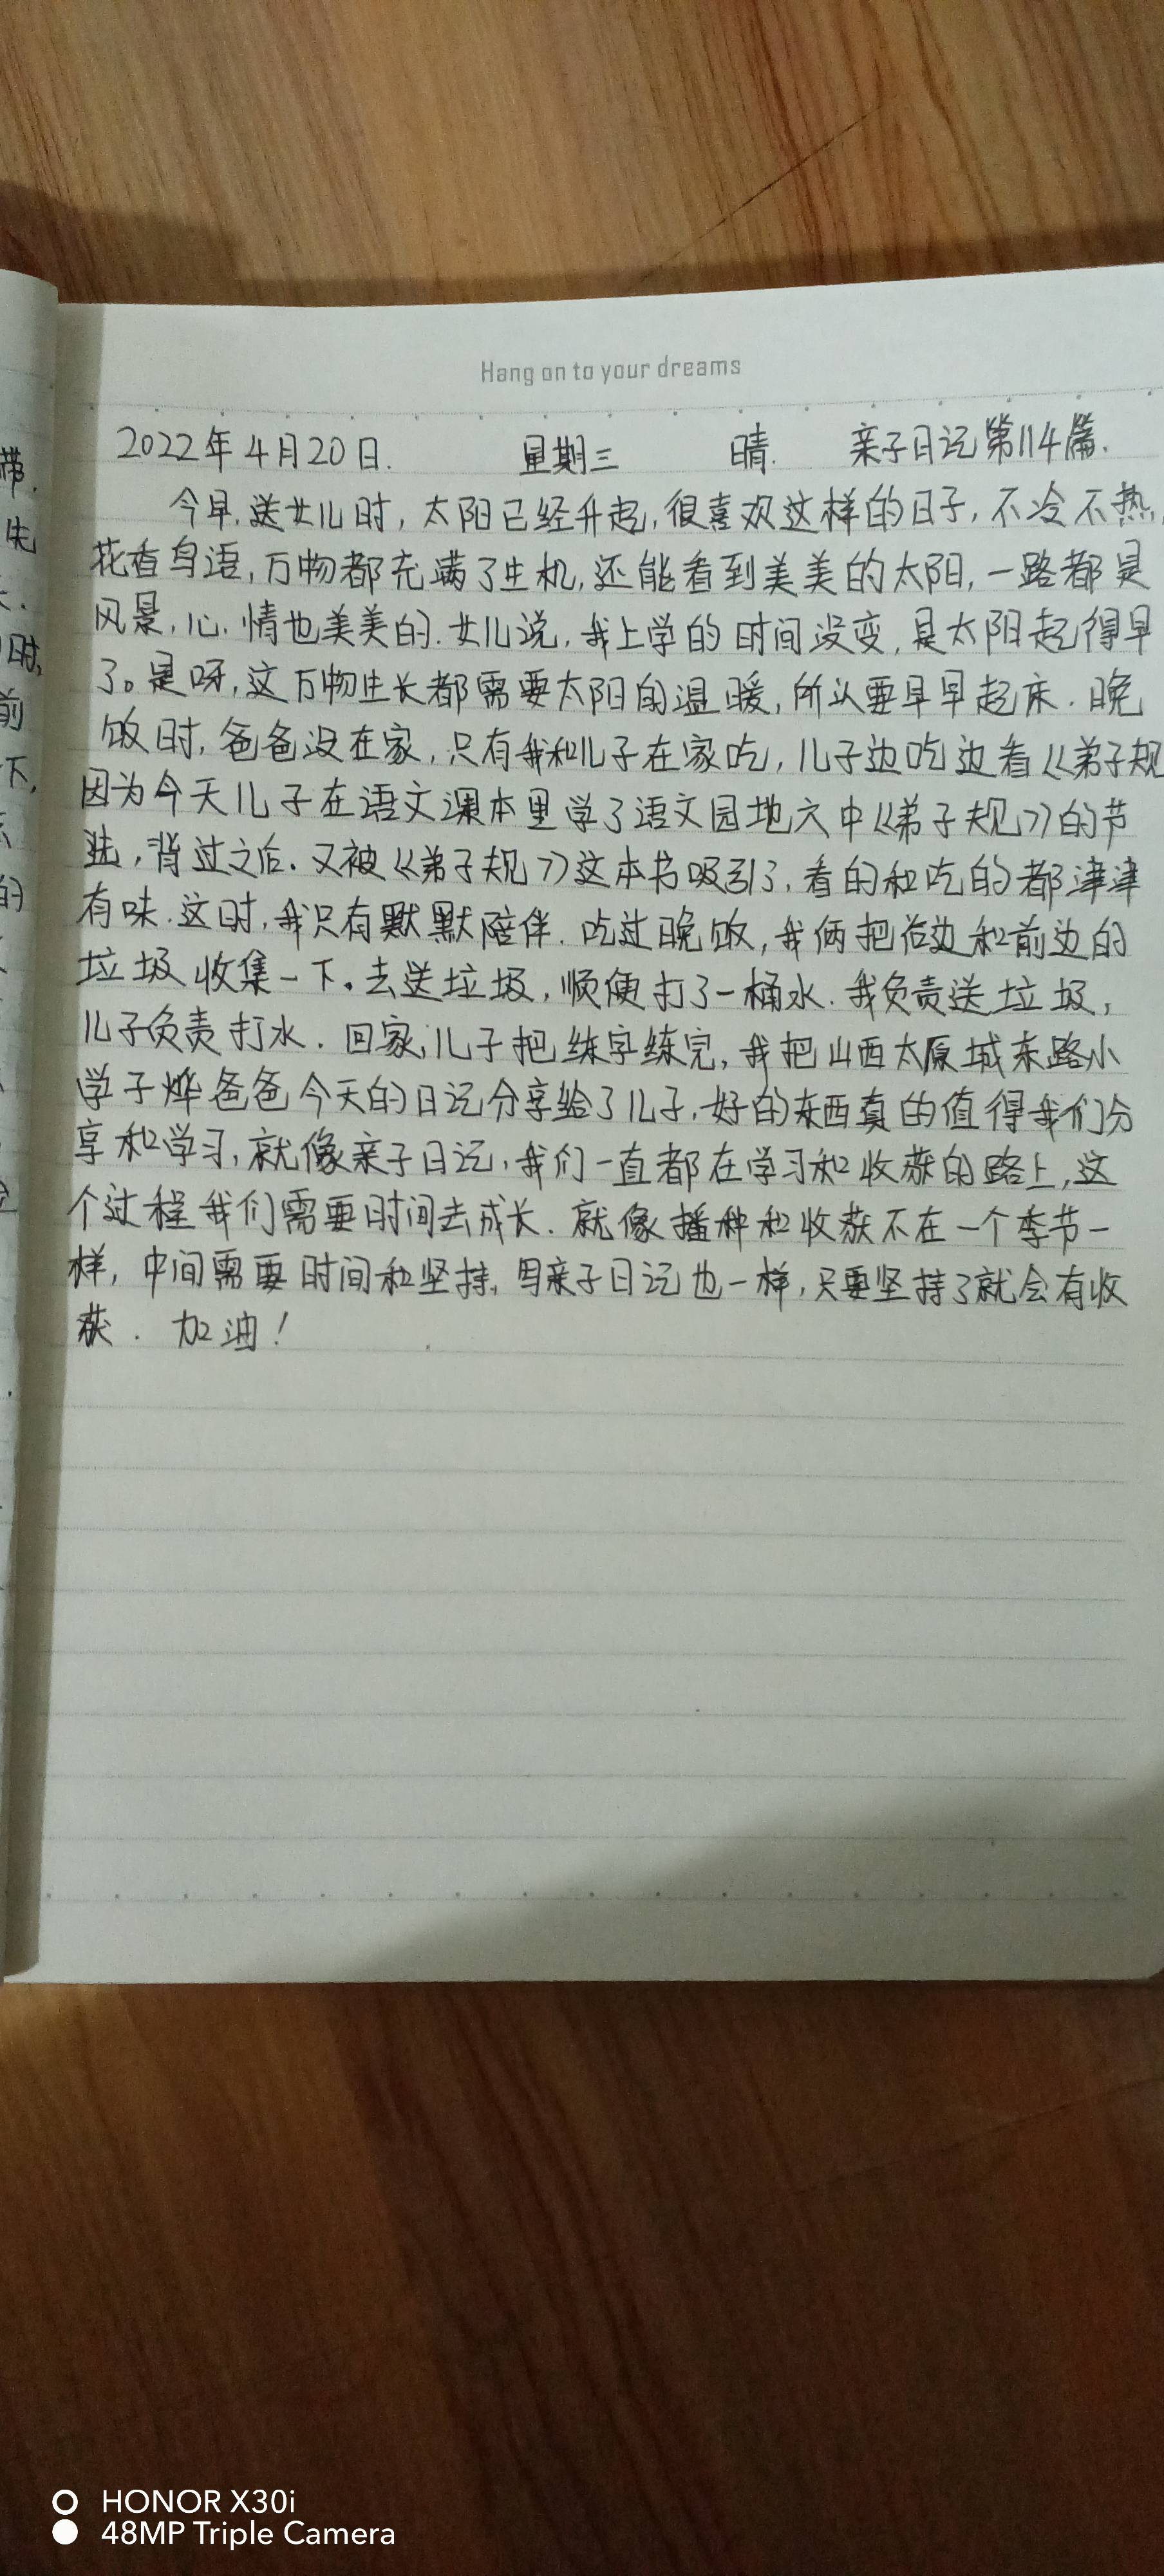 Hang on to your dreams
2022年4月20日. 星期三 晴. 亲子日记第114篇.
今早,送女儿时,太阳已经升起,很喜欢这样的日子,不冷不热,
花香鸟语,万物都充满了生机,还能看到美美的太阳,一路都是
风景,心情也美美的.女儿说,我上学的时间没变,是太阳起得早
了。是呀,这万物生长都需要太阳的温暖,所以要早早起床.晚
饭时,爸爸没在家,只有我和儿子在家吃,儿子边吃边看《弟子规
因为今天儿子在语文课本里学了语文园地六中《弟子规》的节
选,背过之后.又被《弟子规》这本书吸引了,看的和吃的都津津
有味.这时,我只有默默陪伴.吃过晚饭,我俩把后边和前边的
垃圾收集一下。去送垃圾,顺便打了一桶水.我负责送垃圾,
儿子负责打水.回家,儿子把练字练完,我把山西太原城东路小
学子烨爸爸今天的日记分享给了儿子,好的东西真的值得我们分
享和学习,就像亲子日记,我们一直都在学习和收获的路上,这
个过程我们需要时间去成长.就像播种和收获不在一个季节一
样,中间需要时间和坚持,写亲子日记也一样,只要坚持了就会有收
获.加油!
带.
先
时,
前
下,
的
HONOR X30i
48MP Triple Camera